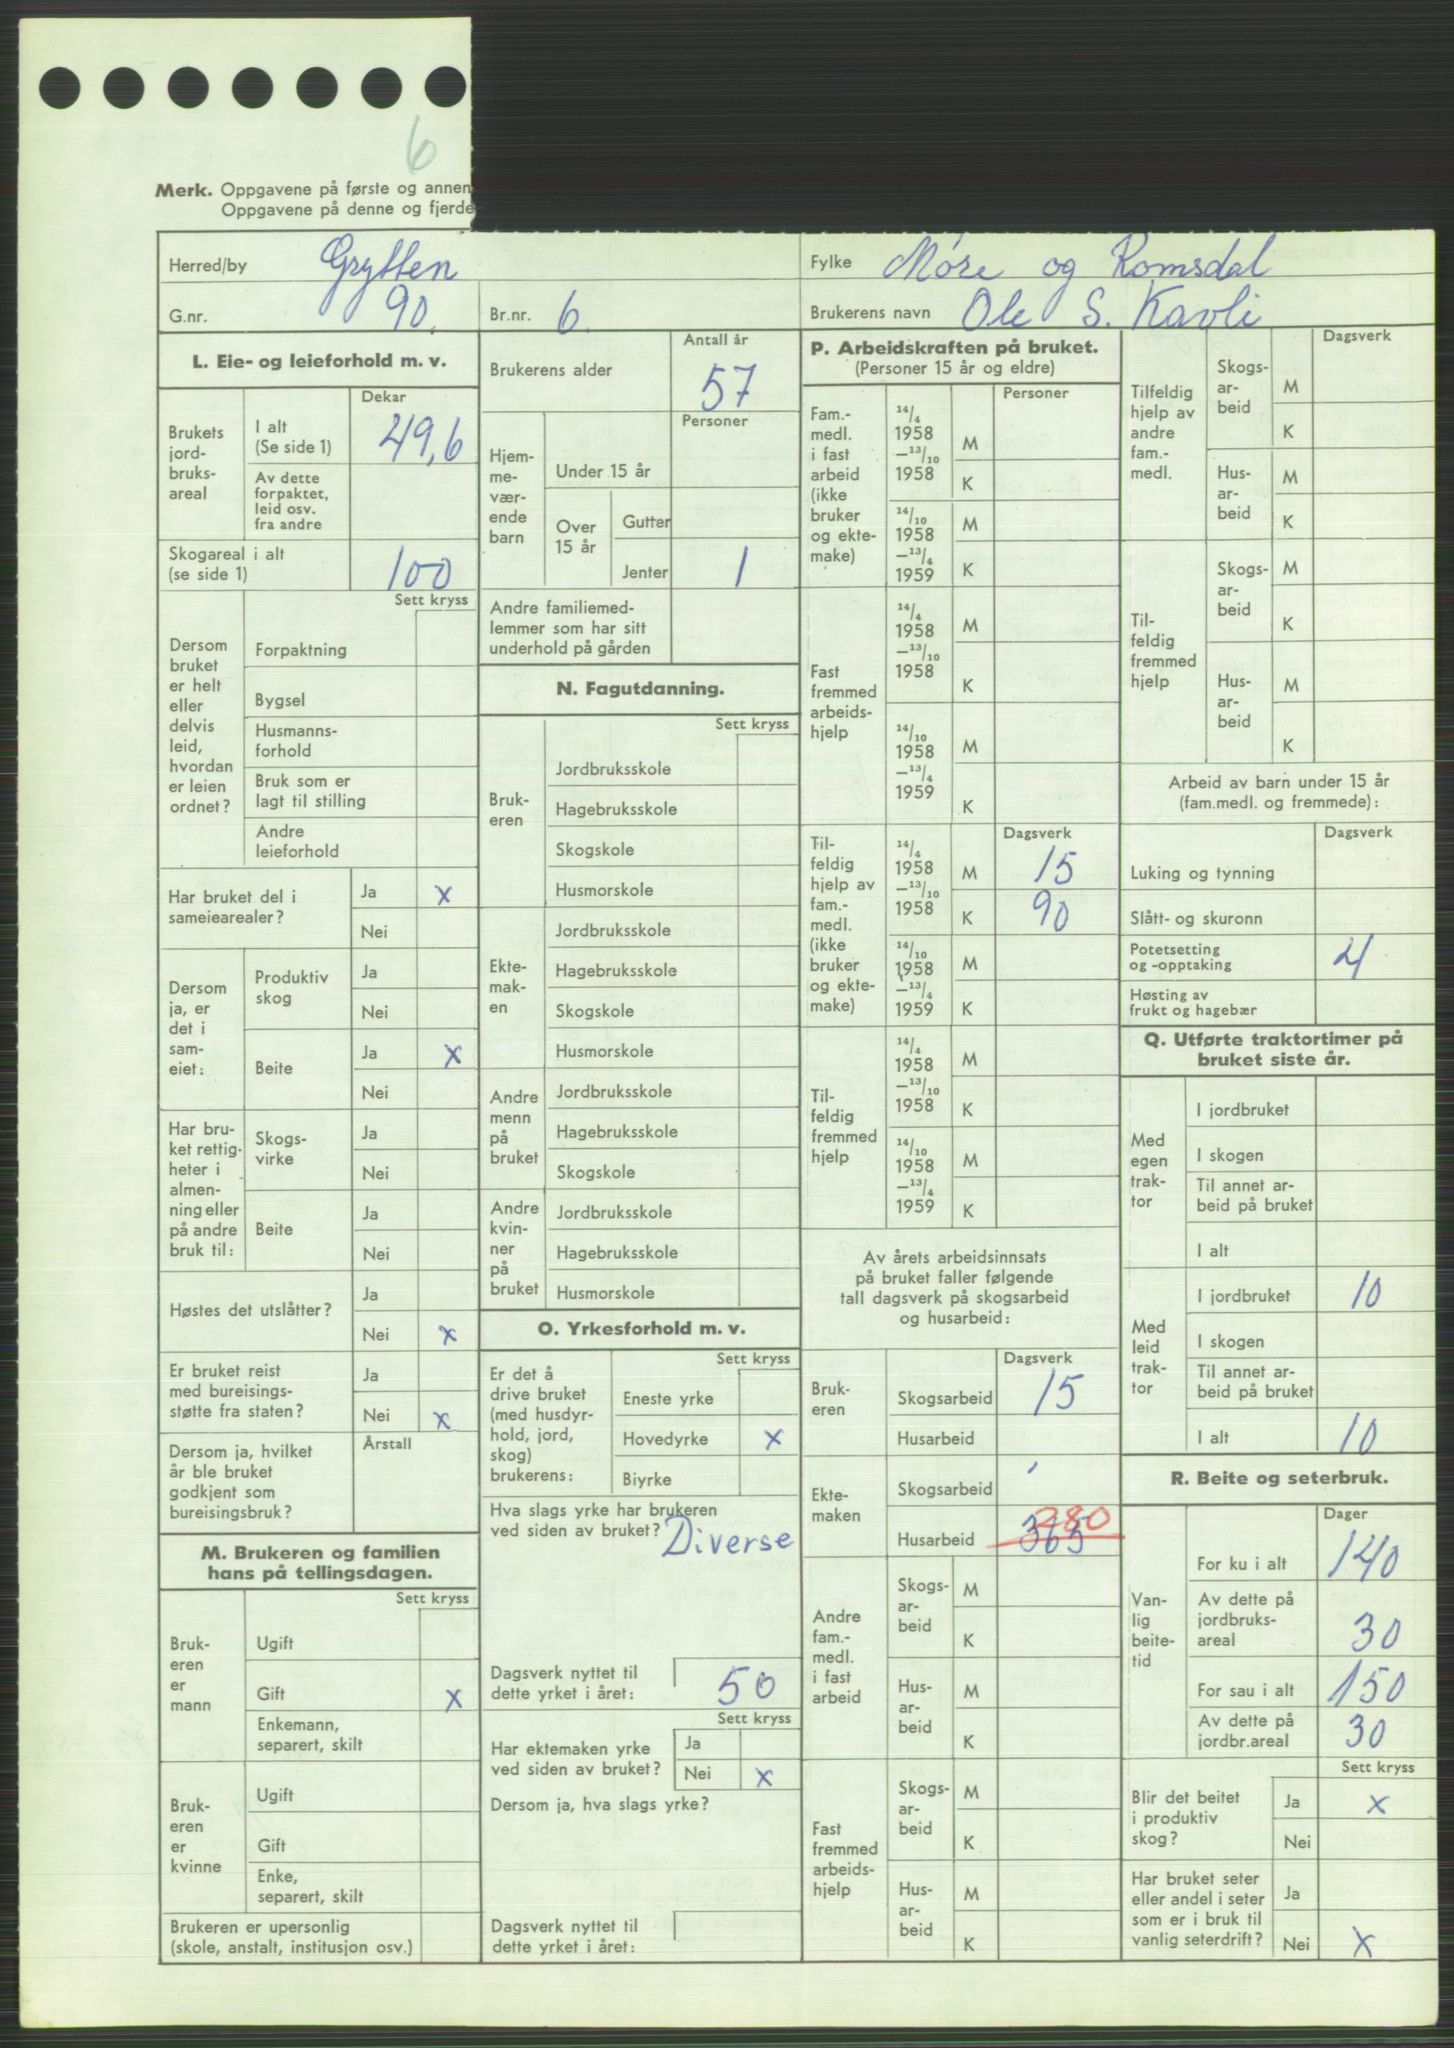 6
Merk. Oppgavene på første og annen
Oppgavene på denne og fjerde
Herred/by Grytten Fylke Møre og Romsdal
G.nr. 90. Br.nr. 6. Brukerens navn Ole S. Kavli
L. Eie- og leieforhold m. v.
Dekar
Brukets jord- bruks- areal
I alt (Se side 1) 49,6
Av dette forpaktet, leid osv. fra andre
Skogareal i alt (se side 1) 100
Sett kryss
Dersom bruket er helt eller delvis leid, hvordan er leien ordnet?
Forpaktning
Bygsel
Husmanns- forhold
Bruk som er lagt til stilling
Andre leieforhold
Har bruket del i sameiearealer?
Ja x
Nei
Dersom ja, er det i sam- eiet:
Produktiv skog
Ja
Nei
Beite
Ja x
Nei
Har bru- ket rettig- heter i almen- ning eller på andre bruk til:
Skogs- virke
Ja
Nei
Beite
Ja
Nei
Høstes det utslåtter?
Ja
Nei x
Er bruket reist med bureisings- støtte fra staten?
Ja
Nei x
Dersom ja, hvilket år ble bruket godkjent som bureisingsbruk?
Årstall
M. Brukeren og familien hans på tellingsdagen.
Sett kryss
Bruk- eren er mann
Ugift
Gift x
Enkemann, separert, skilt
Bruk- eren er kvinne
Ugift
Gift
Enke, separert, skilt
Brukeren er upersonlig (skole, anstalt, institusjon osv.)
Antall år
Brukerens alder 57
Personer
Hjem- me- vær- ende barn
Under 15 år
Over 15 år
Gutter
Jenter 1
Andre familiemed- lemmer som har sitt underhold på gården
N. Fagutdanning.
Sett kryss
Bruk- eren
Jordbruksskole
Hagebruksskole
Skogskole
Husmorskole
Ekte- mak- en
Jordbruksskole
Hagebruksskole
Skogskole
Husmorskole
Andre menn på bruket
Jordbruksskole
Hagebruksskole
Skogskole
Andre kvin- ner på bruket
Jordbruksskole
Hagebruksskole
Husmorskole
O. Yrkesforhold m. v.
Sett kryss
Er det å drive bruket (med husdyr- hold, jord, skog) brukerens:
Eneste yrke
Hovedyrke x
Biyrke
Hva slags yrke har brukeren
ved siden av bruket? Diverse
Dagsverk nyttet til dette yrket i året: 50
Sett kryss
Har ektemaken yrke ved siden av bruket?
Ja
Nei x
Dersom ja, hva slags yrke?
Dagsverk nyttet til dette yrket i året:
P. Arbeidskraften på bruket.
(Personer 15 år og eldre)
Personer
Fam.- medl. i fast arbeid (ikke bruker og ekte- make)
14/4 1958 –13/10 1958
M
K
14/10 1958 –13/4 1959
M
K
Fast fremmed arbeids- hjelp
14/4 1958 –13/10 1958
M
K
14/10 1958 –13/4 1959
M
K
Dagsverk
Til- feldig hjelp av fam.- medl. (ikke bruker og ekte- make)
14/4 1958 –13/10 1958
M 15
K 90
14/10 1958 –13/4 1959
M
K
Til- feldig fremmed hjelp
14/4 1958 –13/10 1958
M
K
14/10 1958 –13/4 1959
M
K
Av årets arbeidsinnsats
på bruket faller følgende
tall dagsverk på skogsarbeid
og husarbeid:
Dagsverk
Bruk- eren
Skogsarbeid 15
Husarbeid
Ekte- maken
Skogsarbeid
Husarbeid 365 280
Andre fam.- medl. i fast arbeid
Skogs- ar- beid
M
K
Hus- ar- beid
M
K
Fast fremmed arbeids- hjelp
Skogs- ar- beid
M
K
Hus- ar- beid
M
K
Dagsverk
Tilfeldig hjelp av andre fam.- medl.
Skogs- ar- beid
M
K
Hus- ar- beid
M
K
Til- feldig fremmed hjelp
Skogs- ar- beid
M
K
Hus- ar- beid
M
K
Arbeid av barn under 15 år
(fam.medl. og fremmede):
Dagsverk
Luking og tynning
Slått- og skuronn
Potetsetting og -opptaking 4
Høsting av frukt og hagebær
Q. Utførte traktortimer på bruket siste år.
Med egen trak- tor
I jordbruket
I skogen
Til annet ar- beid på bruket
I alt
Med leid trak- tor
I jordbruket 10
I skogen
Til annet ar- beid på bruket
I alt 10
R. Beite og seterbruk.
Dager
Van- lig beite- tid
For ku i alt 140
Av dette på jordbruks- areal 30
For sau i alt 150
Av dette på jordbr.areal 30
Sett kryss
Blir det beitet i produktiv skog?
Ja x
Nei
Har bruket seter eller andel i seter som er i bruk til vanlig seterdrift?
Ja
Nei x